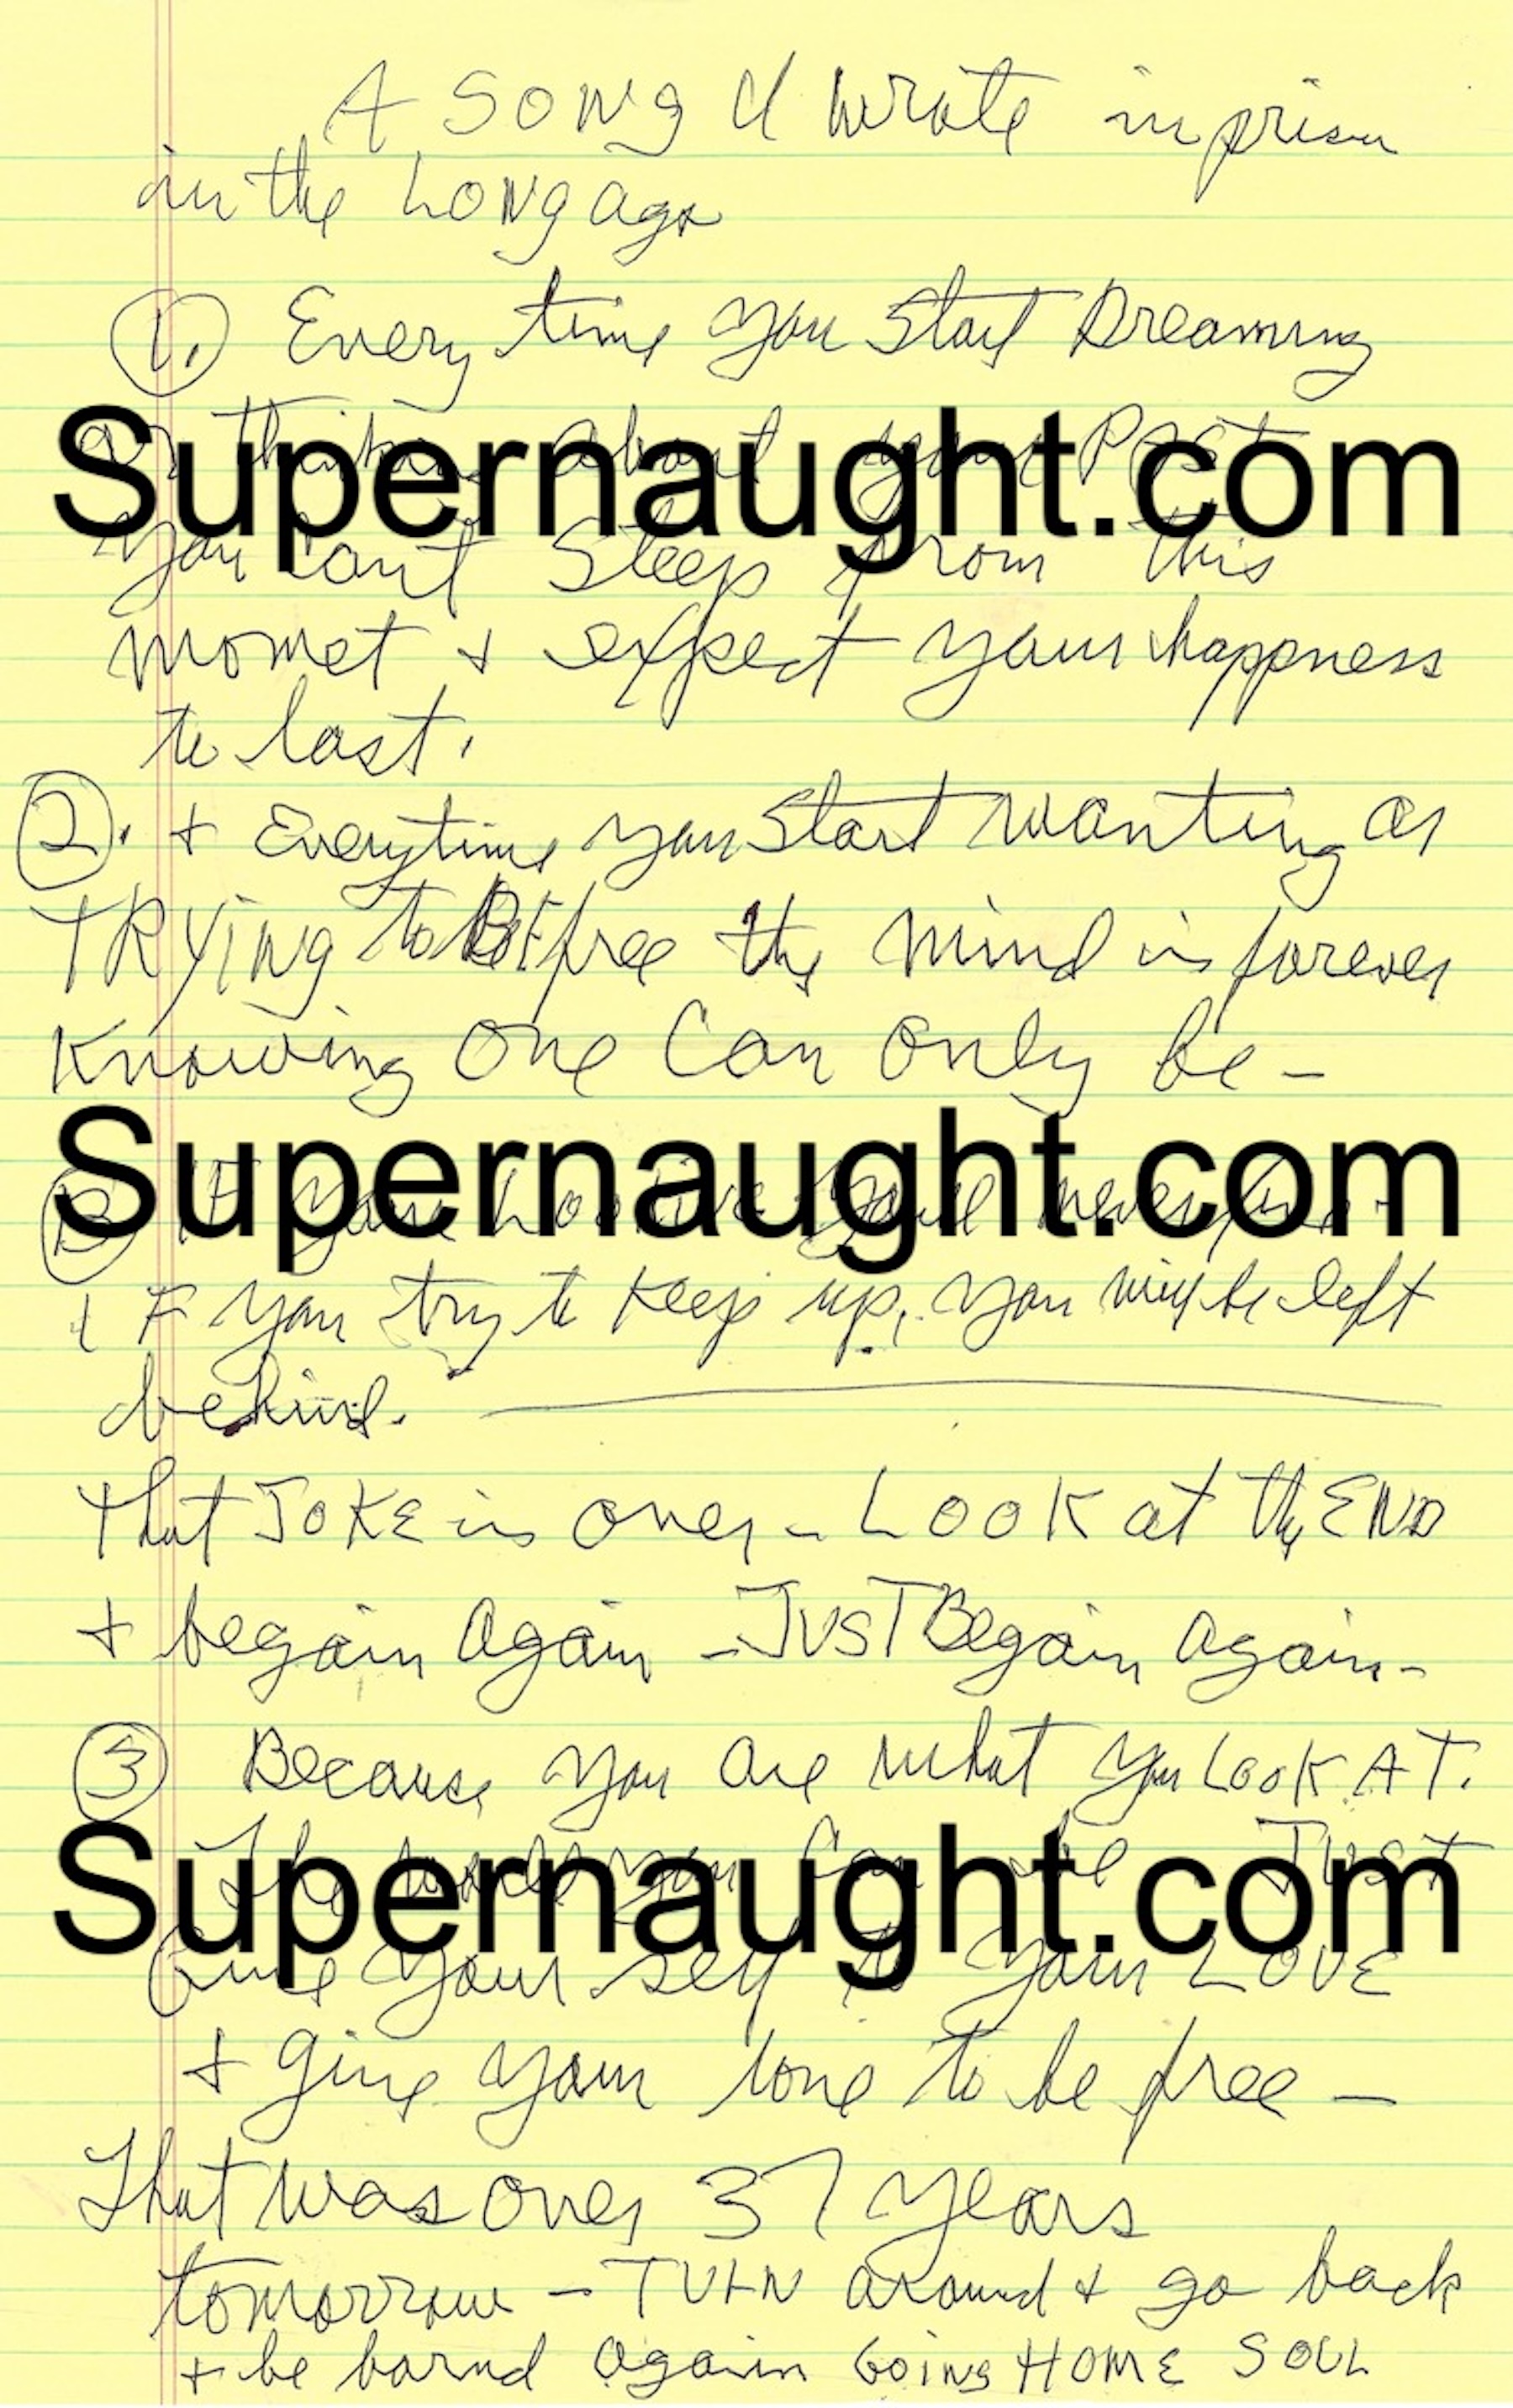 A SONG I wrote in prison
in the LONg ago
1. Every time you Start Dreaming
or thinking about your PAST
Supernaught.com
you cant Sleep from this
momet + expect your happness
to last.
2. + Everytime you Start wanting or
TRYiNg to BE free the mind is forever
Knowing One Can Only be –
Supernaught.com
B IF your Looking youl never find
+ IF you try to Keep up, you will be left
behind.
that JOKE is over – LOOK at thy END
+ begain again – JUST Begain again –
3 Because you are what you LooK AT.
Supernaught.com
The you Can be JUST
Give your self to your LOVE
+ give your love to be free –
That was over 37 years
tomorrow – TURN around + go back
+ be barnd again GOiNg HOME SOUL